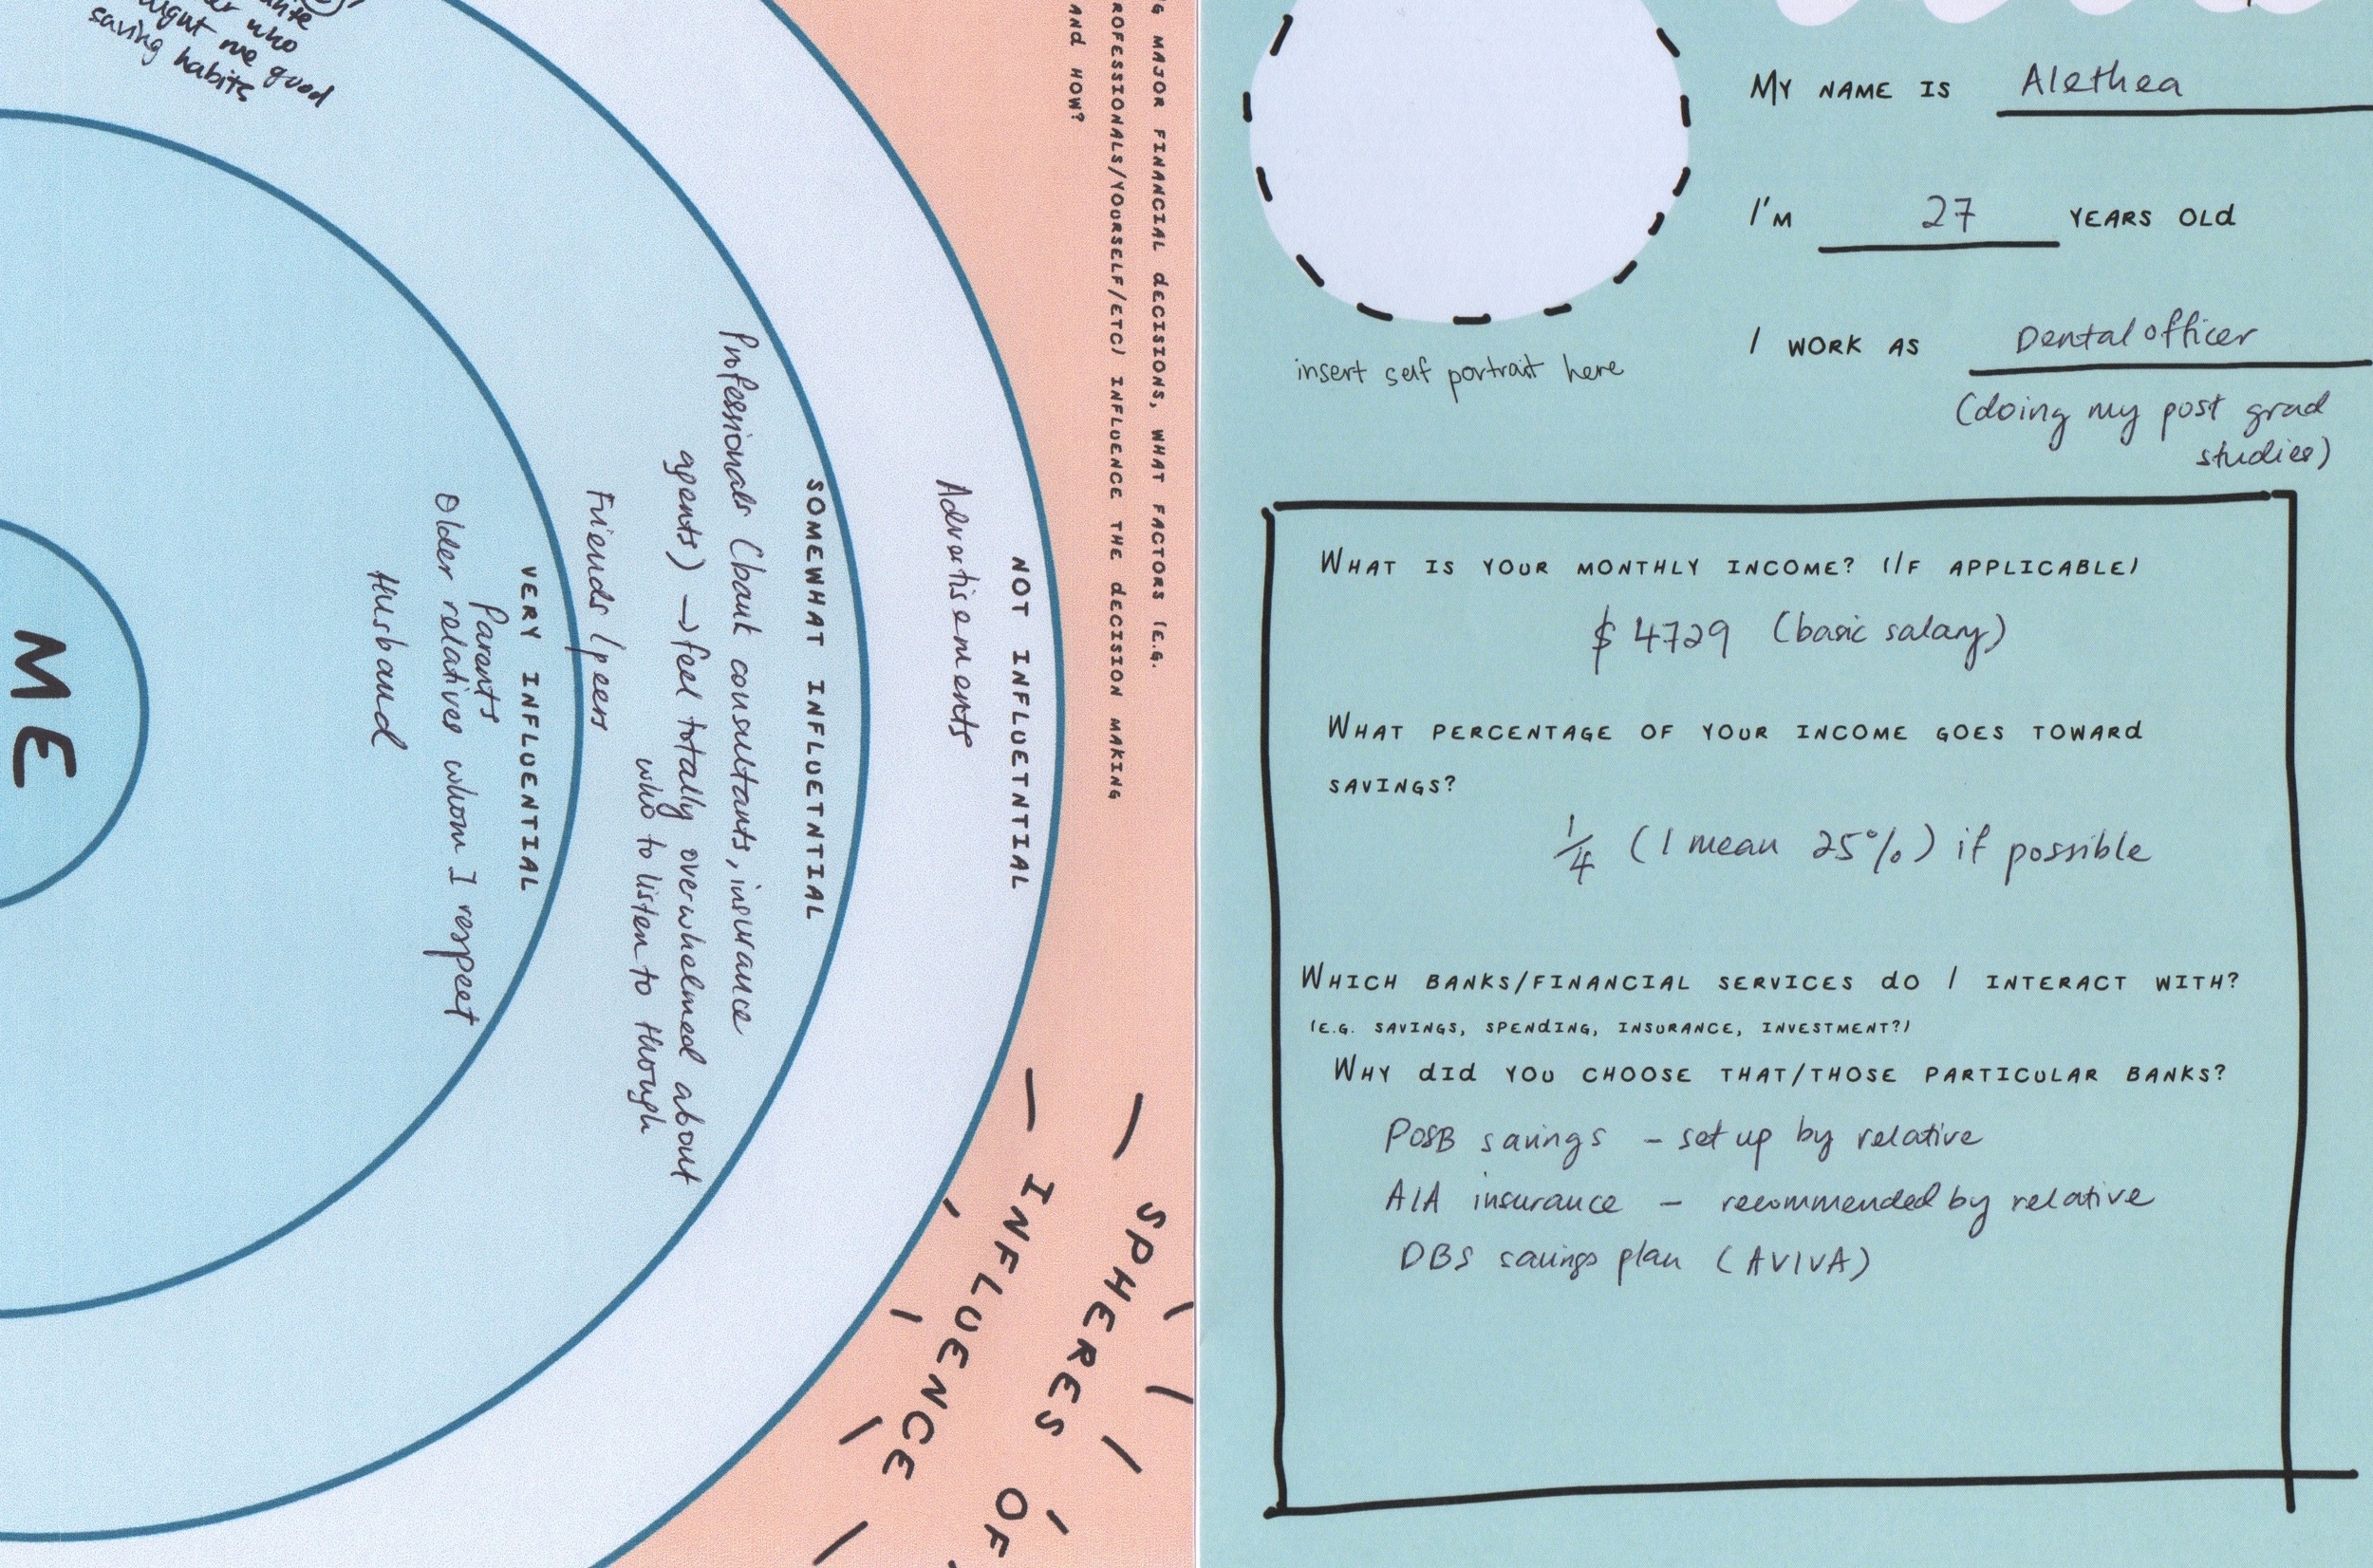 saving habits
ught me good
er who
G MAJOR FINANCIAL DECISIONS, WHAT FACTORS (E.G.
ROFESSIONALS/YOURSELF/ETC) INFLUENCE THE DECISION MAKING
AND HOW?
NOT INFLUETNTIAL
Advertisements
SOMEWHAT INFLUETNTIAL
Professionals (bank consultants, insurance
agents) → feel totally overwhelmed about
who to listen to though
Friends / peers
VERY INFLUENTIAL
Parents
Older relatives whom I respect
Husband
ME
SPHERES OF
INFLUENCE
MY NAME IS Alethea
I'M 27 YEARS OLD
I WORK AS Dental officer
(doing my post grad
studies)
insert self portrait here
WHAT IS YOUR MONTHLY INCOME? (IF APPLICABLE)
$ 4729 (basic salary)
WHAT PERCENTAGE OF YOUR INCOME GOES TOWARD
SAVINGS?
1/4 (I mean 25%) if possible
WHICH BANKS/FINANCIAL SERVICES DO I INTERACT WITH?
(E.G. SAVINGS, SPENDING, INSURANCE, INVESTMENT?)
WHY DID YOU CHOOSE THAT/THOSE PARTICULAR BANKS?
POSB savings - set up by relative
AIA insurance - recommended by relative
DBS savings plan (AVIVA)